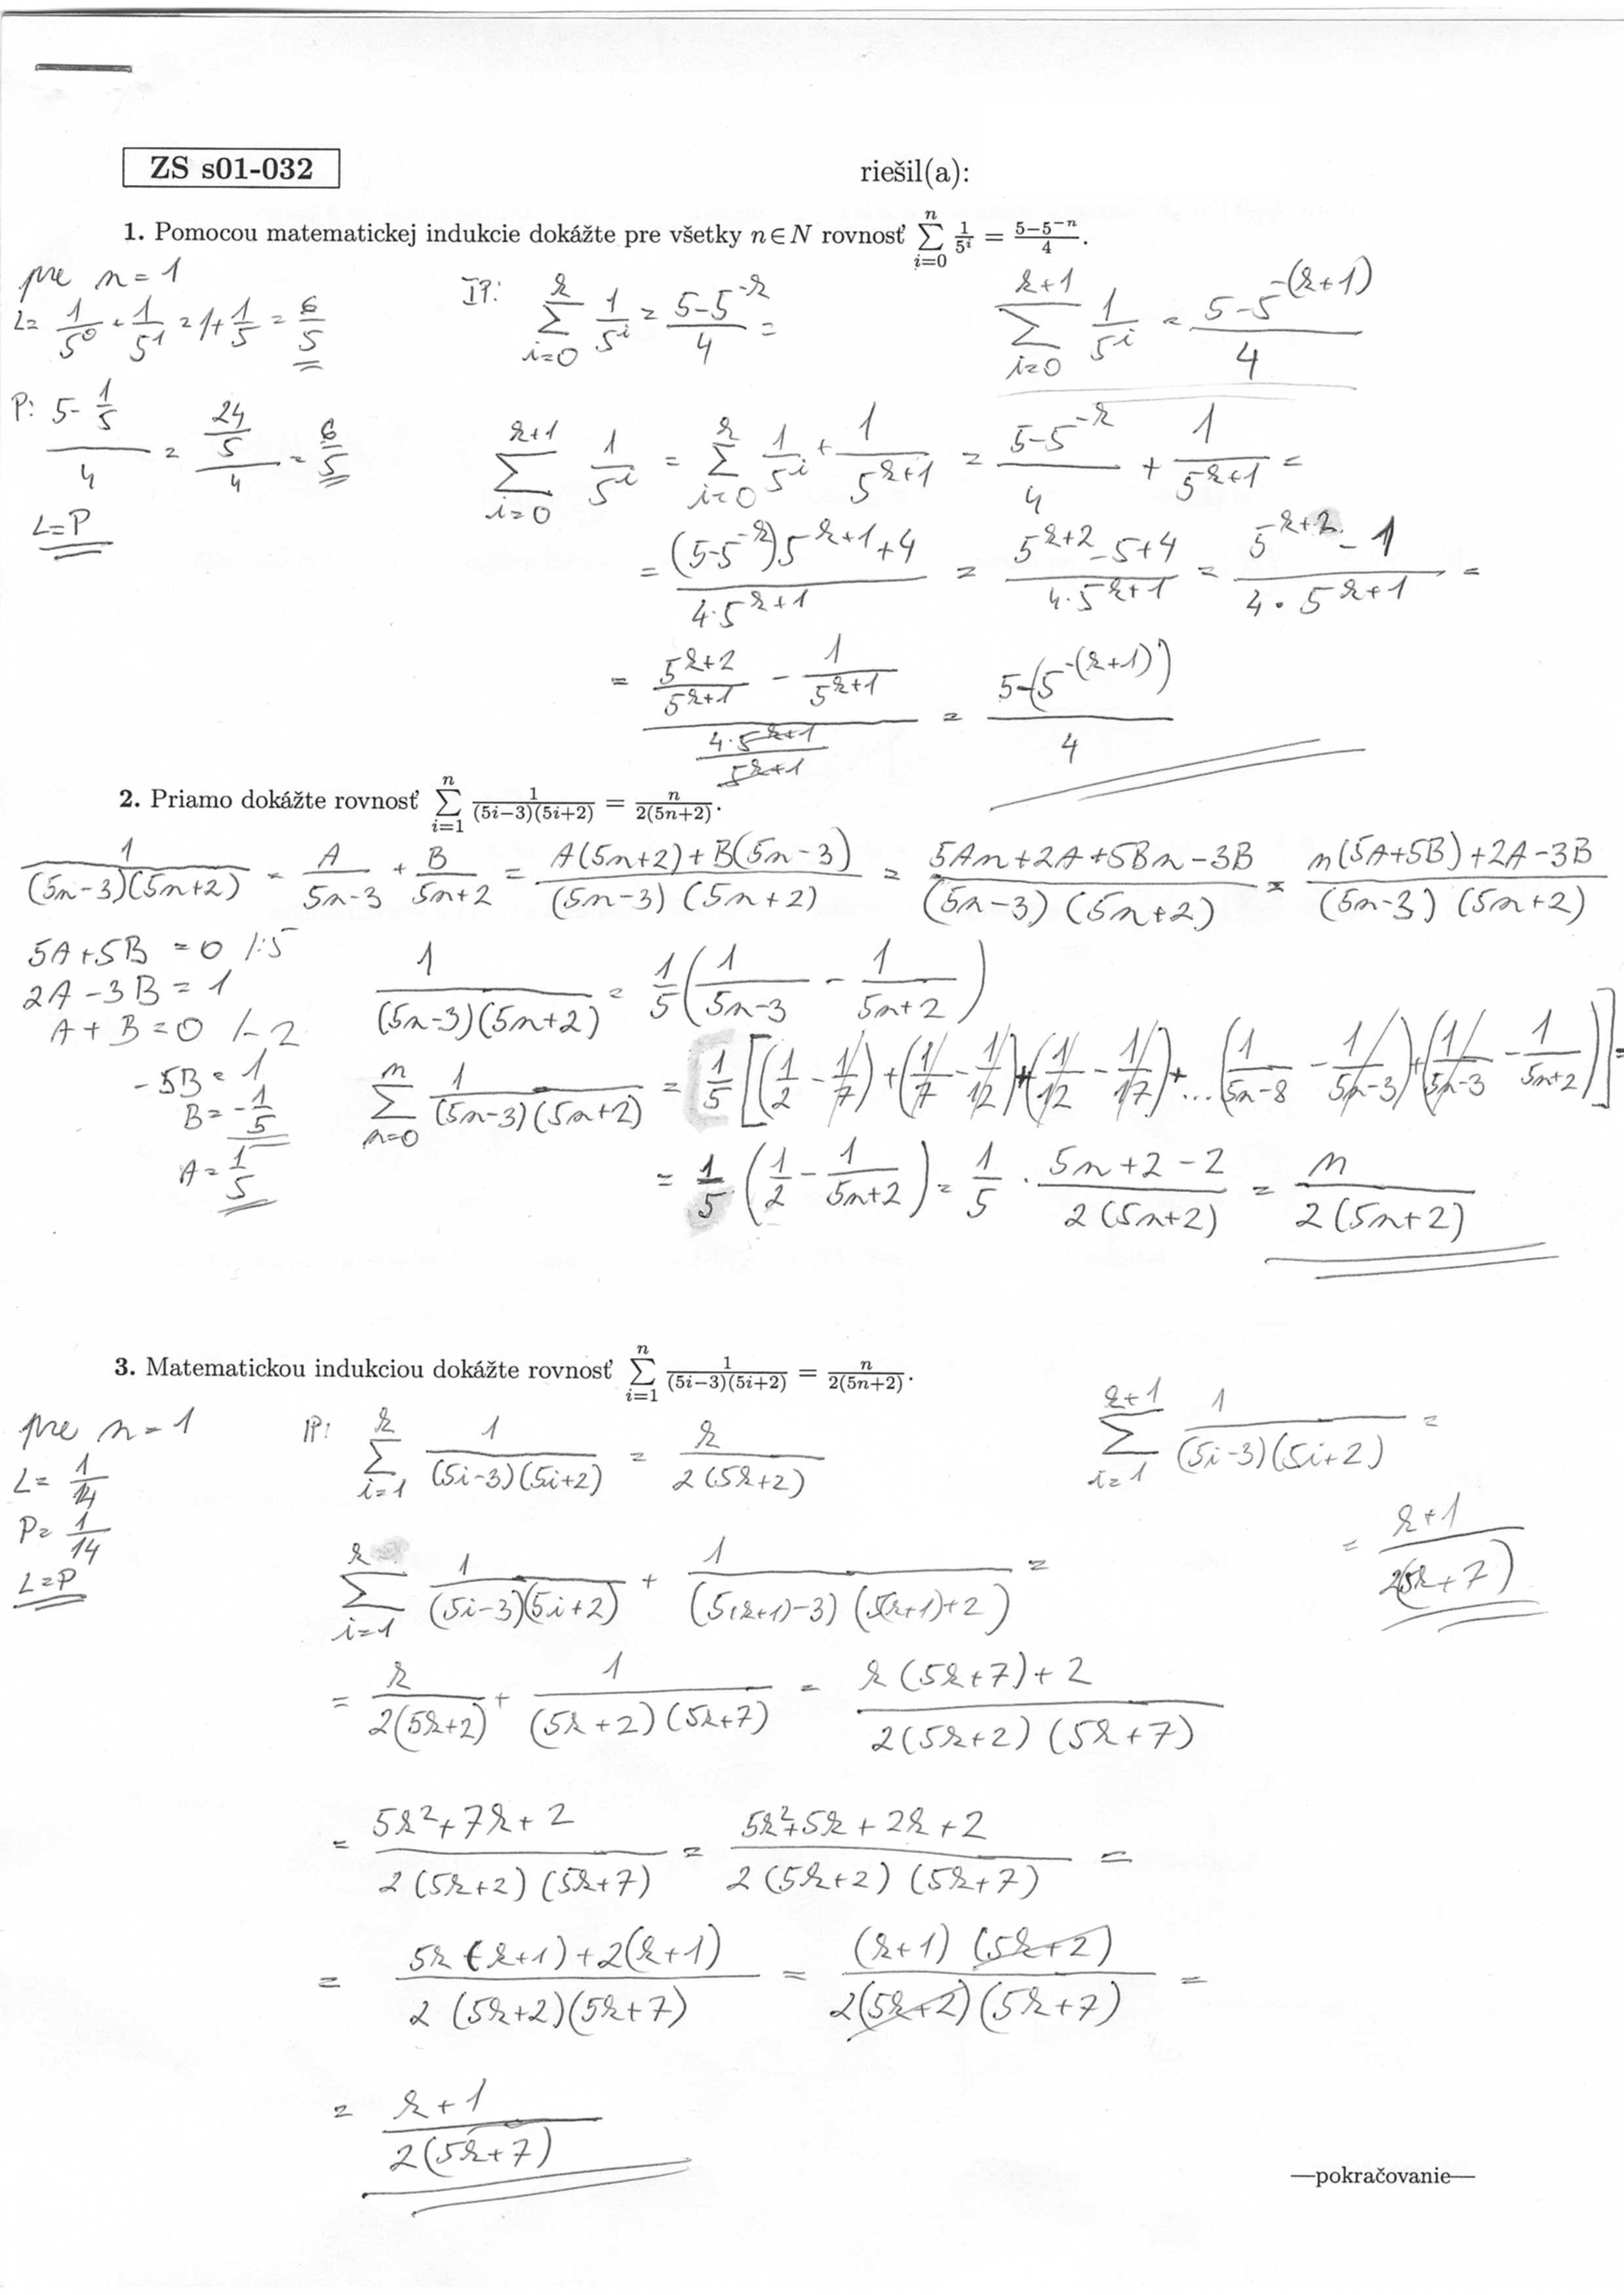 ZS s01-032 riešil(a):
1. Pomocou matematickej indukcie dokážte pre všetky n∈N rovnosť \sum_{i=0}^{n} \frac{1}{5^i} = \frac{5-5^{-n}}{4}.
pre n = 1
L= \frac{1}{5^0} + \frac{1}{5^1} = 1+\frac{1}{5} = \frac{6}{5}
P: \frac{5-\frac{1}{5}}{4} = \frac{\frac{24}{5}}{4} = \frac{6}{5}
L=P
IP: \sum_{i=0}^{k} \frac{1}{5^i} = \frac{5-5^{-k}}{4} =
\sum_{i=0}^{k+1} \frac{1}{5^i} = \frac{5-5^{-(k+1)}}{4}
\sum_{i=0}^{k+1} \frac{1}{5^i} = \sum_{i=0}^{k} \frac{1}{5^i} + \frac{1}{5^{k+1}} = \frac{5-5^{-k}}{4} + \frac{1}{5^{k+1}} =
= \frac{(5-5^{-k})5^{k+1}+4}{4·5^{k+1}} = \frac{5^{k+2}-5+4}{4·5^{k+1}} = \frac{5^{k+2}-1}{4·5^{k+1}} =
= \frac{\frac{5^{k+2}}{5^{k+1}} - \frac{1}{5^{k+1}}}{\frac{4·5^{k+1}}{5^{k+1}}} = \frac{5-(5^{-(k+1)})}{4}
2. Priamo dokážte rovnosť \sum_{i=1}^{n} \frac{1}{(5i-3)(5i+2)} = \frac{n}{2(5n+2)}.
\frac{1}{(5n-3)(5n+2)} = \frac{A}{5n-3} + \frac{B}{5n+2} = \frac{A(5n+2)+B(5n-3)}{(5n-3)(5n+2)} = \frac{5An+2A+5Bn-3B}{(5n-3)(5n+2)} = \frac{n(5A+5B)+2A-3B}{(5n-3)(5n+2)}
5A+5B = 0 /:5
2A-3B = 1
A+B = 0 /-2
-5B = 1
B = -\frac{1}{5}
A = \frac{1}{5}
\frac{1}{(5n-3)(5n+2)} = \frac{1}{5}(\frac{1}{5n-3} - \frac{1}{5n+2})
\sum_{n=0}^{n} \frac{1}{(5n-3)(5n+2)} = \frac{1}{5}[(\frac{1}{2}-\frac{1}{7})+(\frac{1}{7}-\frac{1}{12})+(\frac{1}{12}-\frac{1}{17})+...(\frac{1}{5n-8}-\frac{1}{5n-3})+(\frac{1}{5n-3}-\frac{1}{5n+2})] =
= \frac{1}{5}(\frac{1}{2}-\frac{1}{5n+2}) = \frac{1}{5} · \frac{5n+2-2}{2(5n+2)} = \frac{n}{2(5n+2)}
3. Matematickou indukciou dokážte rovnosť \sum_{i=1}^{n} \frac{1}{(5i-3)(5i+2)} = \frac{n}{2(5n+2)}.
pre n = 1
L = \frac{1}{14}
P = \frac{1}{14}
L=P
IP: \sum_{i=1}^{k} \frac{1}{(5i-3)(5i+2)} = \frac{k}{2(5k+2)}
\sum_{i=1}^{k+1} \frac{1}{(5i-3)(5i+2)} =
= \frac{k+1}{2(5k+7)}
\sum_{i=1}^{k} \frac{1}{(5i-3)(5i+2)} + \frac{1}{(5(k+1)-3)(5(k+1)+2)} =
= \frac{k}{2(5k+2)} + \frac{1}{(5k+2)(5k+7)} = \frac{k(5k+7)+2}{2(5k+2)(5k+7)}
= \frac{5k^2+7k+2}{2(5k+2)(5k+7)} = \frac{5k^2+5k+2k+2}{2(5k+2)(5k+7)} =
= \frac{5k(k+1)+2(k+1)}{2(5k+2)(5k+7)} = \frac{(k+1)(5k+2)}{2(5k+2)(5k+7)} =
= \frac{k+1}{2(5k+7)}
—pokračovanie—